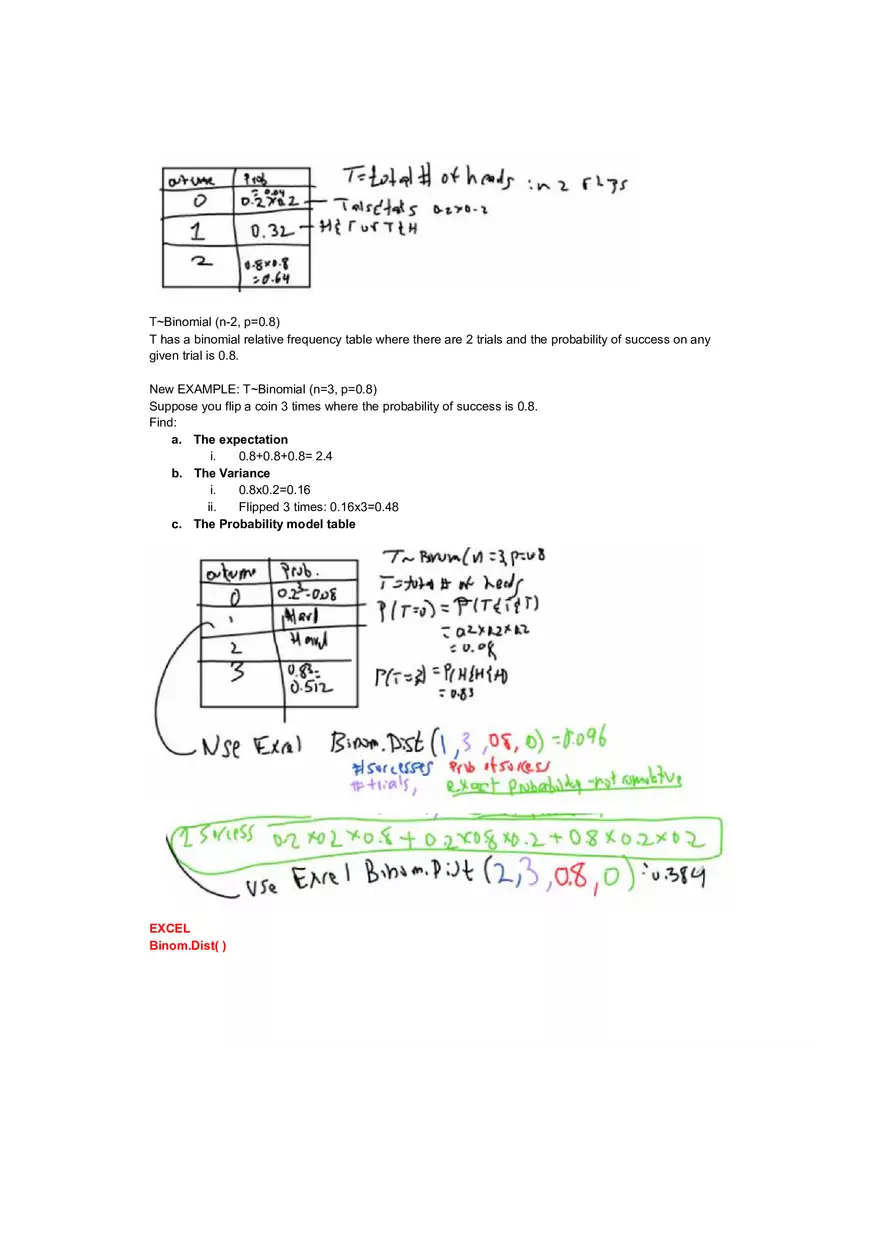 outcome Prob
0 0.2x0.2 = 0.04
1 0.32
2 0.8x0.8 = 0.64
T=total # of heads in 2 flips
Tails & tails 0.2x0.2
H&T or T&H
T~Binomial (n-2, p=0.8)
T has a binomial relative frequency table where there are 2 trials and the probability of success on any
given trial is 0.8.
New EXAMPLE: T~Binomial (n=3, p=0.8)
Suppose you flip a coin 3 times where the probability of success is 0.8.
Find:
a. The expectation
i. 0.8+0.8+0.8= 2.4
b. The Variance
i. 0.8x0.2=0.16
ii. Flipped 3 times: 0.16x3=0.48
c. The Probability model table
outcome Prob.
0 0.2³=0.08
1 Hard
2 Hard
3 0.83= 0.512
T~Binom(n=3, p=0.8
T=total # of heads
P(T=0) = P(T&T&T)
= 0.2x0.2x0.2
= 0.08
P(T=3) = P(H&H&H)
= 0.83
Use Excel Binom.Dist(1,3,08,0) =0.096
# successes Prob of success
# trials, exact probability - not cumulative
1 Success 0.2x0.2x0.8+0.2x0.8x0.2+0.8x0.2x0.2
Use Excel Binom.Dist(2,3,0.8,0) = 0.384
EXCEL
Binom.Dist( )